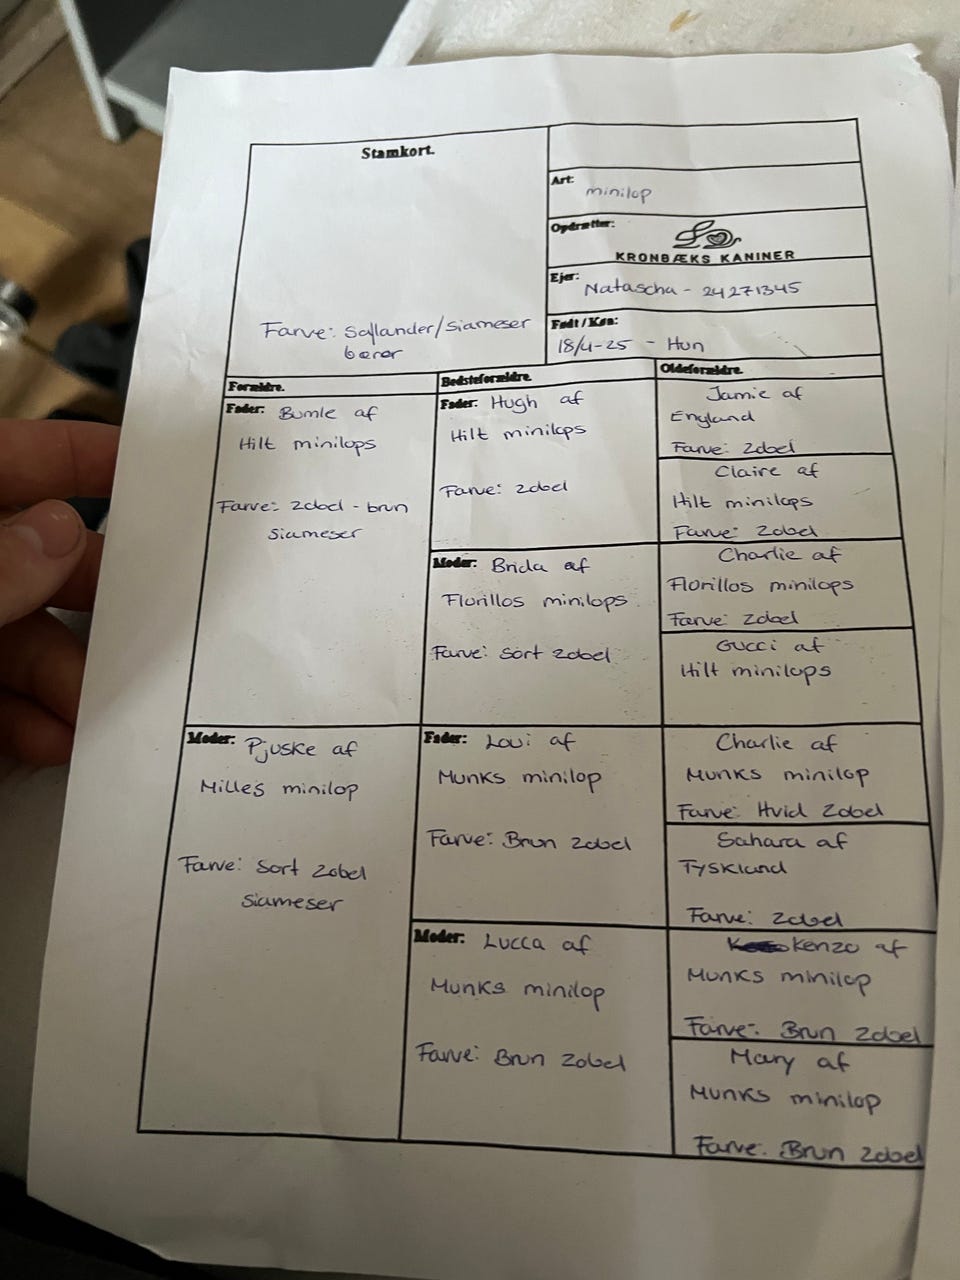 Stamkort.
Farve: Sallander/Siameser
bærer
Art: minilop
Opdrætter:
KRONBÆKS KANINER
Ejer: Natascha - 24271345
Født / Køn:
18/4-25 - Hun
Forældre.
Fader: Bumle af
Hilt minilops
Farve: Zobel - brun
siameser
Moder: Pjuske af
Milles minilop
Farve: Sort Zobel
siameser
Bedsteforældre.
Fader: Hugh af
Hilt minilops
Farve: Zobel
Moder: Brida af
Florillos minilops
Farve: Sort Zobel
Fader: Loui af
Munks minilop
Farve: Brun Zobel
Moder: Lucca af
Munks minilop
Farve: Brun Zobel
Oldeforældre.
Jamie af
England
Farve: Zobel
Claire af
Hilt minilops
Farve: Zobel
Charlie af
Florillos minilops
Farve: Zobel
Gucci af
Hilt minilops
Charlie af
Munks minilop
Farve: Hvid Zobel
Sahara af
Tyskland
Farve: Zobel
Kenzo af
Munks minilop
Farve: Brun Zobel
Mary af
Munks minilop
Farve: Brun Zobel